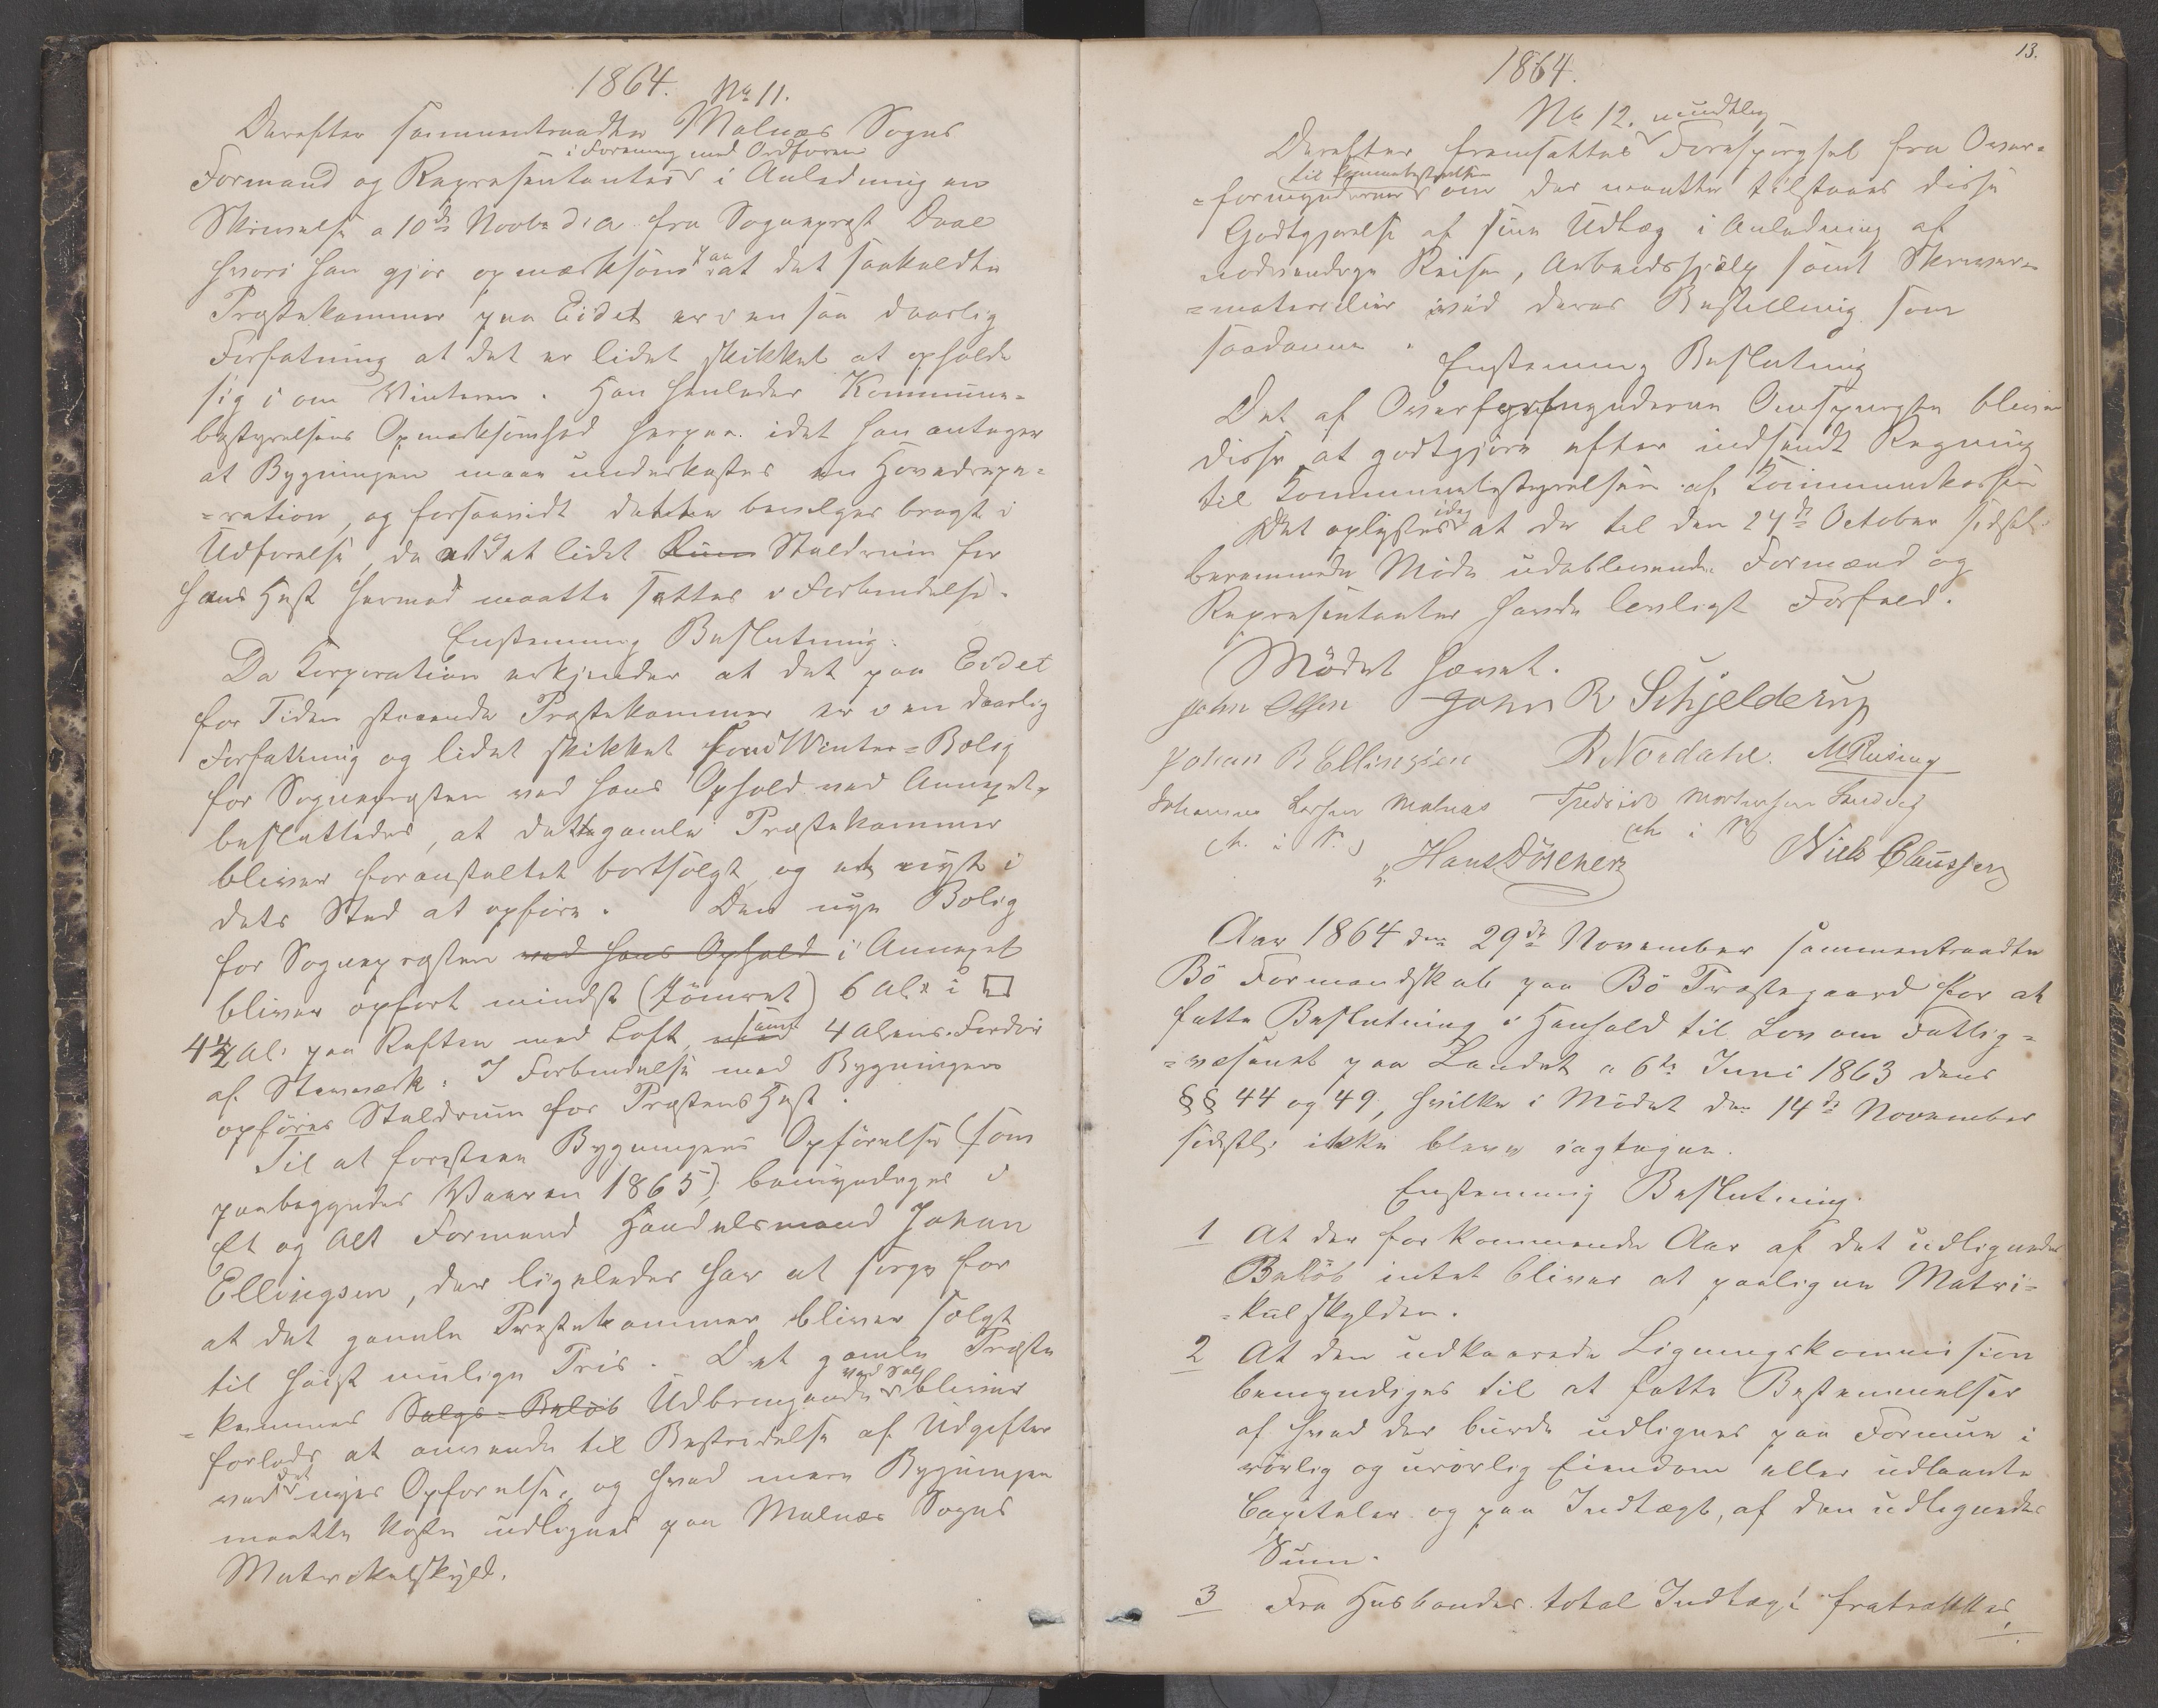 1864.
No 11.
Derefter sammentraadte Malnæs Sogns
i Forening med Ordføreren
Formænd og Repræsentanter i Anledning en
Skrivelse a 10de Novbr d. A. fra Sognepræst Daae
hvori han gjør opmærksom paa at det saakaldte
Præstekammer paa Eidet er i en saa daarlig
Forfatning at det er lidet skikket at opholde
sig i om Vinteren. Han henleder Kommune-
bestyrelsens Opmærksomhed herpaa. idet han antager
at Bygningen maa underkastes en Hovedrepa-
-ration, og forsaavidt dette bevilges bragt i
Udførelse, da at et lidet Rum Staldrum for
hans Hest hermed maatte sættes i Forbindelse.
Enstemmig Beslutning.
Da Korporation erkjender at det paa Eidet
for Tiden staaende Præstekammer er i en daarlig
Forfatning og lidet skikket som Vinter-Bolig
for Sognepræsten ved hans Ophold ved Annexet,
besluttedes, at dette gamle Præstekammer
bliver foranstaltet bortsolgt og et nyt i
dets Sted at opføre. Den nye Bolig
for Sognepræsten ved hans Ophold i Annexet
bliver opført mindst (tømret) 6 Al. i □
4½ Al. paa Røsten med Loft, med samt 4 Alens Fordør
af Stavværk. I Forbindelse med Bygningen
opføres Staldrum for Præstens Hest.
Til at forestaae Bygningens Opførelse (som
paabegyndes Vaaren 1865), bemyndiges i
Et og Alt Formand Handelsmand Johan
Ellingsen, der ligeledes har at sørge for
at det gamle Præstekammer bliver solgt
til høist mulige Pris. Det gamle Præste
-kammers Salgs-Beløb Udbringende ved Salg bliver
forlods at anvende til Bestridelse af Udgifter
ved det nyes Opførelse, og hvad mere Bygningen
maatte koste udlignes paa Malnæs Sogns
Matrikelskyld.
13.
1864.
No 12.
mundtlig
Derefter fremsattes Forespørgsel fra Over-
til Kommunebestyrelsen
-formynderne om der maatte tilstaaes disse
Godtgjørelse af sine Udlæg i Anledning af
nødvendige Reiser, Arbeidshjælp samt Skriver-
-materialier ved deres Bestilling som
saadanne.
Enstemmig Beslutning
Det af Overformynderne Omspurgte bliver
disse at godtgjøre efter indsendt Regning
til Kommunebestyrelsen af Kommunekassen
Det oplystes idag at de til den 24de October sidstl.
berammede Møde udeblevende Formænd og
Repræsentanter havde lovligt Forfald.
Mödet hævet.
John Olsen John R Schjelderup
Johan R Ellingsen R Nordahl. M Rusing
Johannes Larsen Malnæs Fredrik Mortensen Sandvig
m. i P. m i P
Hans Dölcher Niels Claussen
Aar 1864 den 29de November sammentraadte
Bö Formandskab paa Bö Præstegaard for at
fatte Beslutning i Henhold til Lov om Fattig-
-væsenet paa Landet a 6te Juni 1863 dens
§§ 44 og 49, hvilke i Mödet den 14de November
sidstl. ikke bleve iagtagen.
Enstemmig Beslutning.
1 At der for kommende Aar af det udlignede
Beløb intet bliver at paaligne Matri-
-kulskylden.
2 At den udkaarede Ligningskommission
bemyndiges til at fatte Bestemmelser
af hvad der burde udlignes paa Formue i
rørlig og urørlig Eiendom eller udlaante
Capitaler og paa Indtægt, af den udlignedes
Sum.
3 Fra Husbondes total Indtægt fratrækkes,